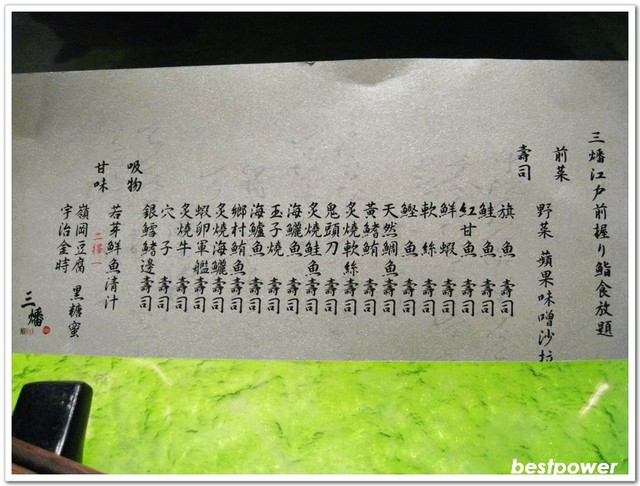 三燔江戶前握り鮨食放題
前菜
野菜 蘋果味噌沙拉
壽司
旗魚壽司
鮭魚壽司
紅甘魚壽司
鮮蝦壽司
軟絲壽司
鰹魚壽司
天然鯛魚壽司
黃鰭鮪壽司
炙燒軟絲壽司
鬼頭刀壽司
炙燒鮭魚壽司
海鱺魚壽司
玉子燒壽司
海鱸魚壽司
鄉村鮪魚壽司
炙燒海鱺壽司
蝦卵軍艦壽司
炙燒牛壽司
穴子壽司
銀鱈鰭邊壽司
吸物
若芽鮮魚清汁
甘味
二擇一
嶺岡豆腐 黑糖蜜
宇治金時
三燔
bestpower